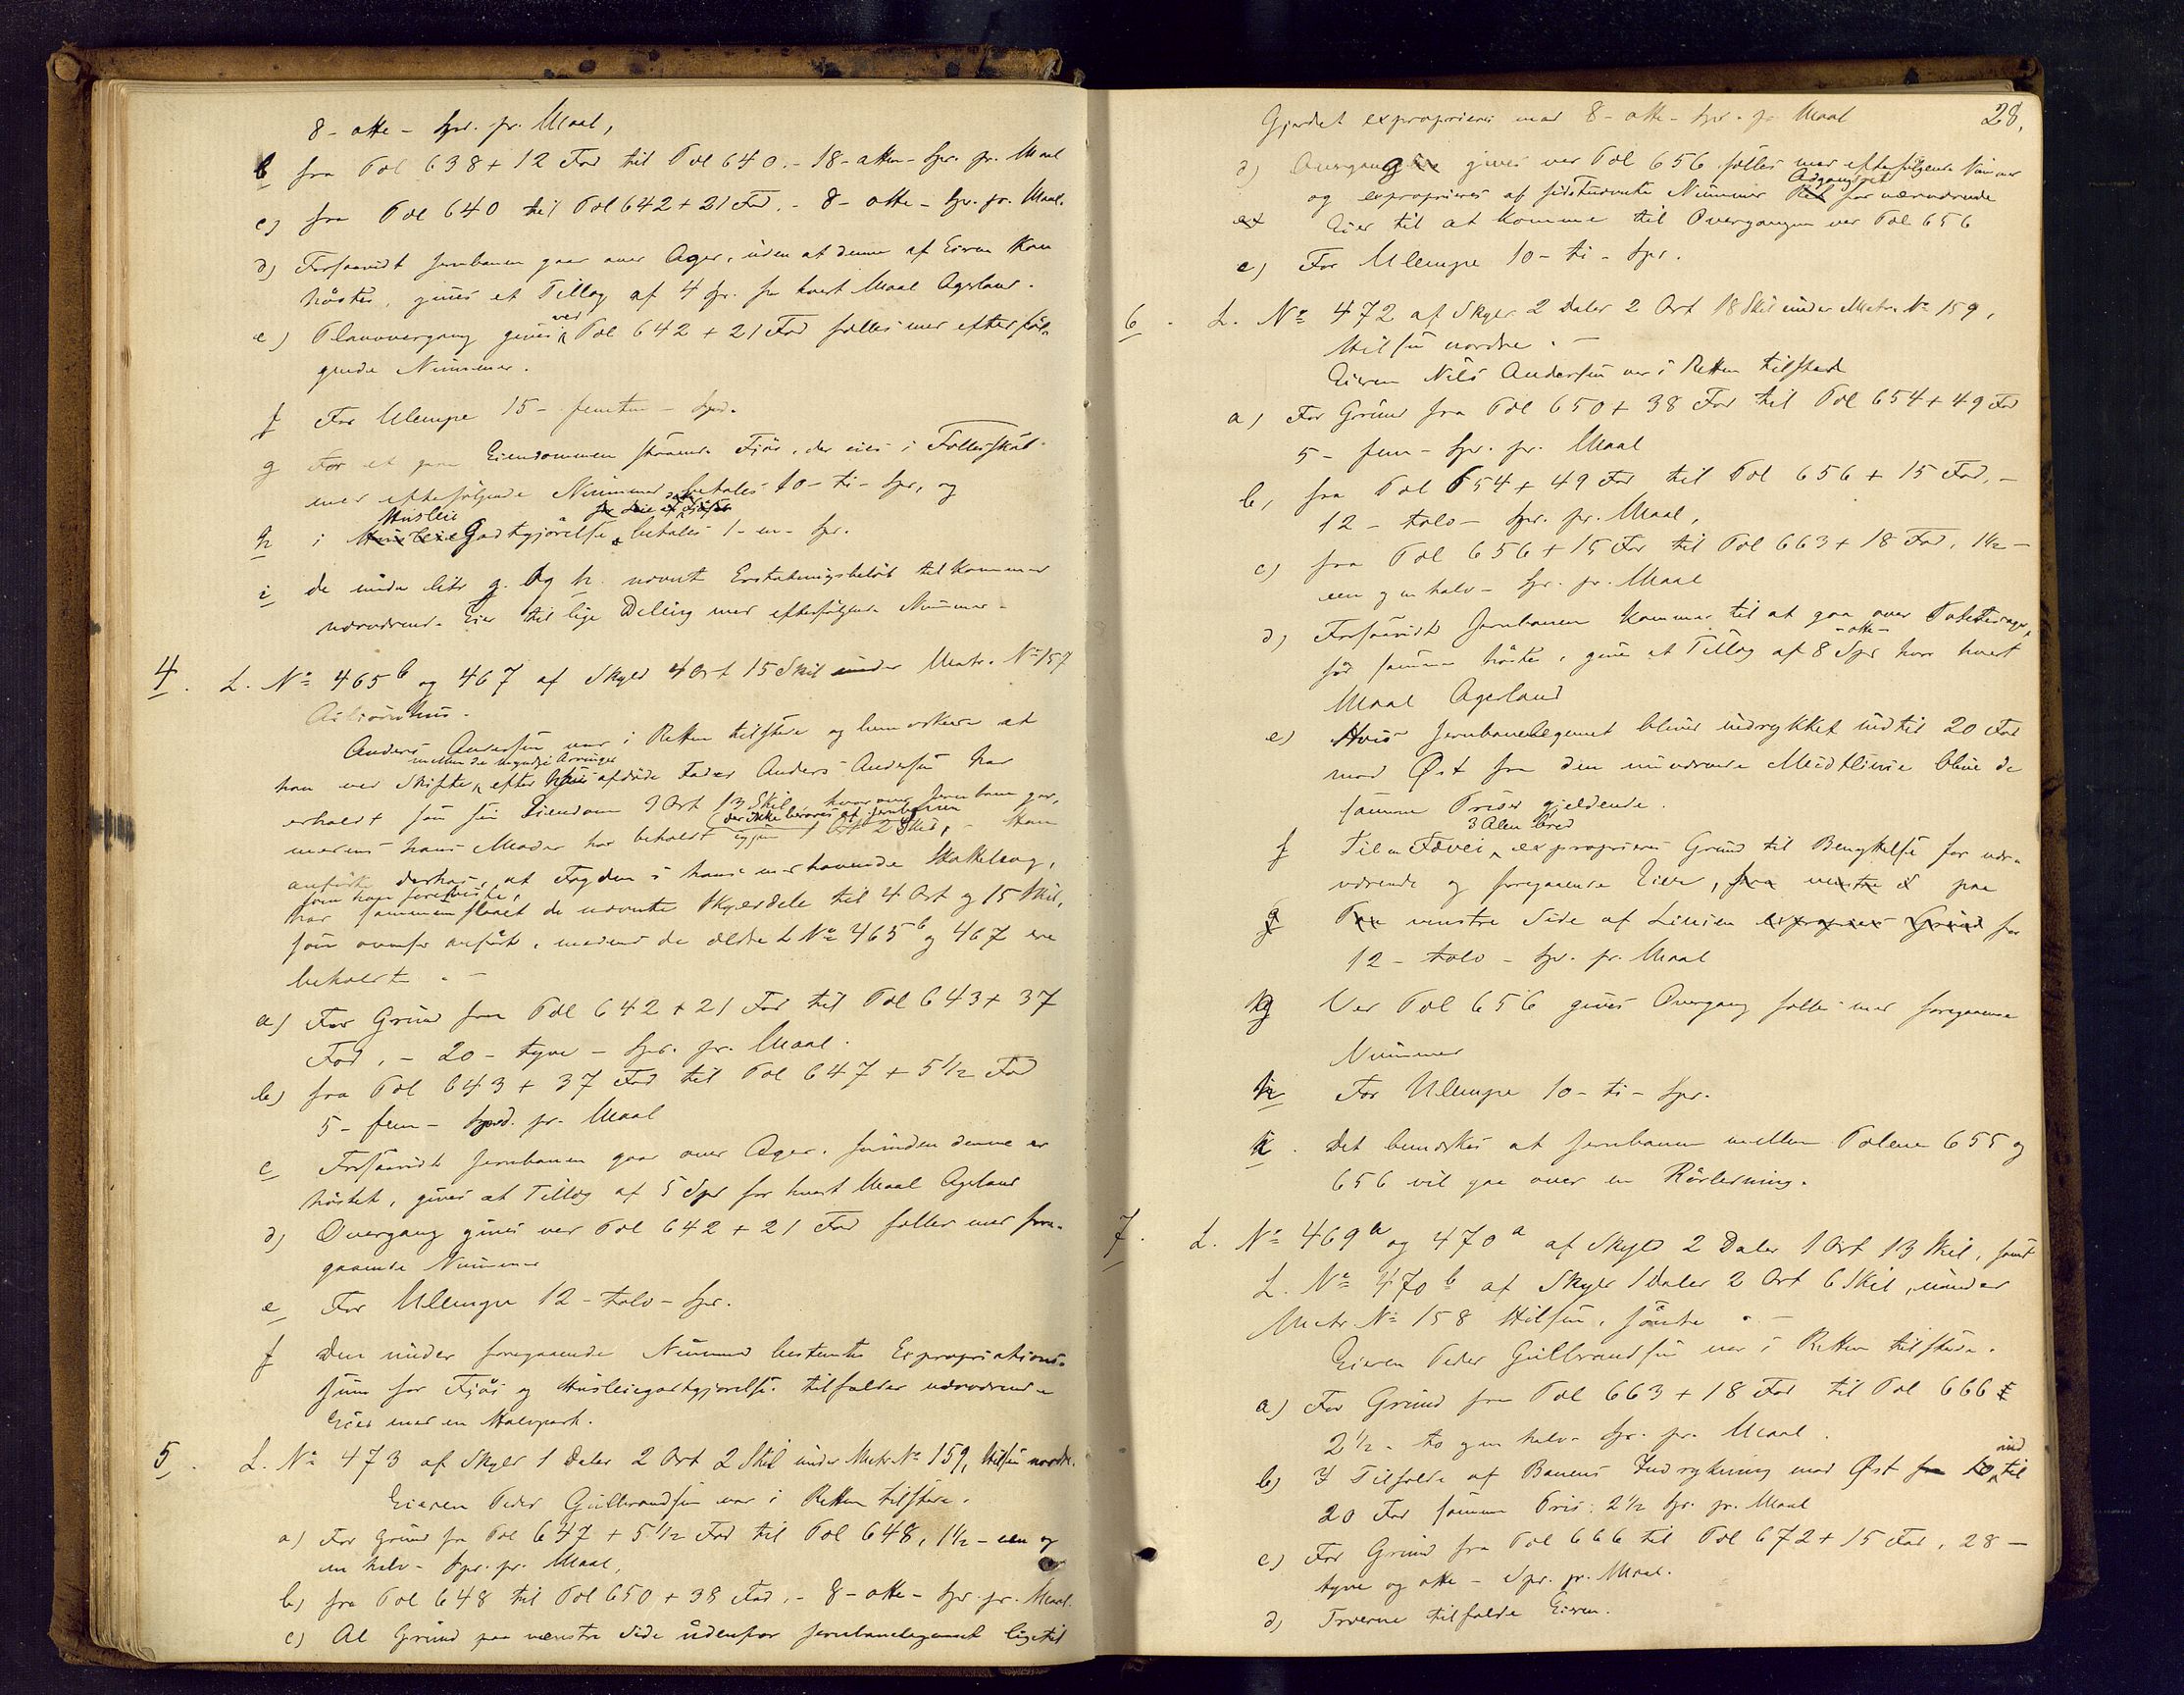 8 - otte - Spd. pr. Maal,
b fra Pæl 638 + 12 Fod til Pæl 640. - 18 - atten - Spd. pr. Maal
c) fra Pæl 640 til Pæl 642 + 21 Fod. - 8 - otte - Spd. pr. Maal.
d) Forsaavidt Jernbanen gaar over Ager, uden at denne af Eieren kan
høstes, gives et Tillæg af 4 Spd. for hvert Maal Agerland.
e) Planovergang gives ved Pæl 642 + 21 Fod fælles med efterføl-
gende Nummer.
f For Ulempe 15 - femten - Spd.
g For et paa Eiendommen staaende Fjøs, der eies i Fællesskab
med efterfølgende Nummer betales 10 - ti - Spd, og
h i Husleie Godtgjørelse betales 1 - en - Spd.
i de under litr g. og h. nævnte Erstatningsbeløb tilkommer
nærværende Eier til lige Deling med efterfølgende Nummer.
4. L. No 465 b og 467 af Skyld 4 Ort 15 Skil under Matr. No 157
Asbjørnhus.
Anders Andersen var i Retten tilstede og bemærkede at
mellem de myndige Arvinger
han ved Skifte efter hans afdøde Fader Anders Andersen har
erholdt som sin Eiendom 3 Ort 13 Skil, hvorover Jernbanen gaar,
(der ikke berøres af Jernbanen
medens hans Moder har beholdt igjen 1 Ort 2 Skil, - Han
anførte derhos, at Fogden i hans medhavende Skattebog,
som han foreviste,
har sammenslaaet de nævnte Skylddele til 4 Ort og 15 Skil,
som ovenfor anført, medens de ældre L No 465 b og 467 ere
beholdte. -
a) For Grund fra Pæl 642 + 21 Fod til Pæl 643 + 37
Fod, - 20 - tyve - Spd. pr. Maal.
b) fra Pæl 643 + 37 Fod til Pæl 647 + 5 1/2 Fod
5 - fem - Spd. pr. Maal
c Forsaavidt Jernbanen gaar over Ager, forinden denne er
høstet, gives et Tillæg af 5 Spd for hvert Maal Agerland
d) Overgang gives ved Pæl 642 + 21 Fod fælles med fore-
gaaende Nummer
e For Ulempe 12 - tolv - Spd.
f Den under foregaaende Nummer bestemte Expropriations-
sum for Fjøs og Husleiegodtgjørelse tilfalder nærværende
Eier med en Halvpart.
5. L. No 473 af Skyld 1 Daler 2 Ort 2 Skil under Matr No 159, Hilsen nordre.
Eieren Peder Gulbrandsen var i Retten tilstede.
a) For Grund fra Pæl 647 + 5 1/2 Fod til Pæl 648, 1 1/2 - een og
en halv - Spd. pr. Maal,
b) fra Pæl 648 til Pæl 650 + 38 Fod, - 8 - otte - Spd. pr. Maal.
c) Al Grund paa venstre Side udenfor Jernbanelegemet ligetil
28.
Gjerdet exproprieres med 8 - otte - Spd. pr Maal
d) Overgang gives ved Pæl 656 fælles med efterfølgende Nummer
Adgangsret
og exproprieres af sidstnævnte Nummer Ret for nærværende
Eier til at komme til Overgangen ved Pæl 656
e) For Ulempe 10 - ti - Spd.
6. L. No 472 af Skyld 2 Daler 2 Ort 18 Skil under Matr. No 159,
Hilsen nordre. -
Eieren Nils Andersen var i Retten tilstede
a) For Grund fra Pæl 650 + 38 Fod til Pæl 654 + 49 Fod
5 - fem - Spd. pr. Maal
b, fra Pæl 654 + 49 Fod til Pæl 656 + 15 Fod, -
12 - tolv - Spd. pr. Maal,
c) fra Pæl 656 + 15 Fod til Pæl 663 + 18 Fod, 1 1/2 -
een og en halv - Spd. pr. Maal
d) Forsaavidt Jernbanen kommer til at gaa over Potetesager,
- otte -
før samme høstes, gives et Tillæg af 8 Spd hvor hvert
Maal Agerland
e) Hvis Jernbanelegemet bliver indrykket indtil 20 Fod
mod Øst fra den nuværende Midtlinie blive de
samme Priser gjeldende.
3 Alen bred
f Til en Fævei exproprieres Grund til Benyttelse for nær-
værende og foregaaende Eier, fra venstre S paa
g Paa venstre Side af Linien exproprieres Grund for
12 - tolv - Spd. pr. Maal
g Ved Pæl 656 gives Overgang fælles med foregaaende
Nummer
h For Ulempe 10 - ti - Spd.
i. Det bemærkes at Jernbanen mellem Pælene 655 og
656 vil gaa over en Rørledning.
7. L. No 469 a og 470 a af Skyld 2 Daler 1 Ort 13 Skil, samt
L. No 470 b af Skyld 1 Daler 2 Ort 6 Skil, under
Matr No 158 Hilsen, søndre. -
Eieren Peder Gulbrandsen var i Retten tilstede.
a) For Grund fra Pæl 663 + 18 Fod til Pæl 666
2 1/2 - to og en halv - Spd. pr. Maal.
b) I Tilfælde af Banens Indrykning mod Øst fra 10 ind til
20 Fod samme Pris: 2 1/2 Spd. pr. Maal
c) For Grund fra Pæl 666 til Pæl 672 + 15 Fod, 28 -
tyve og otte - Spd. pr. Maal.
d) Træerne tilfalde Eieren.